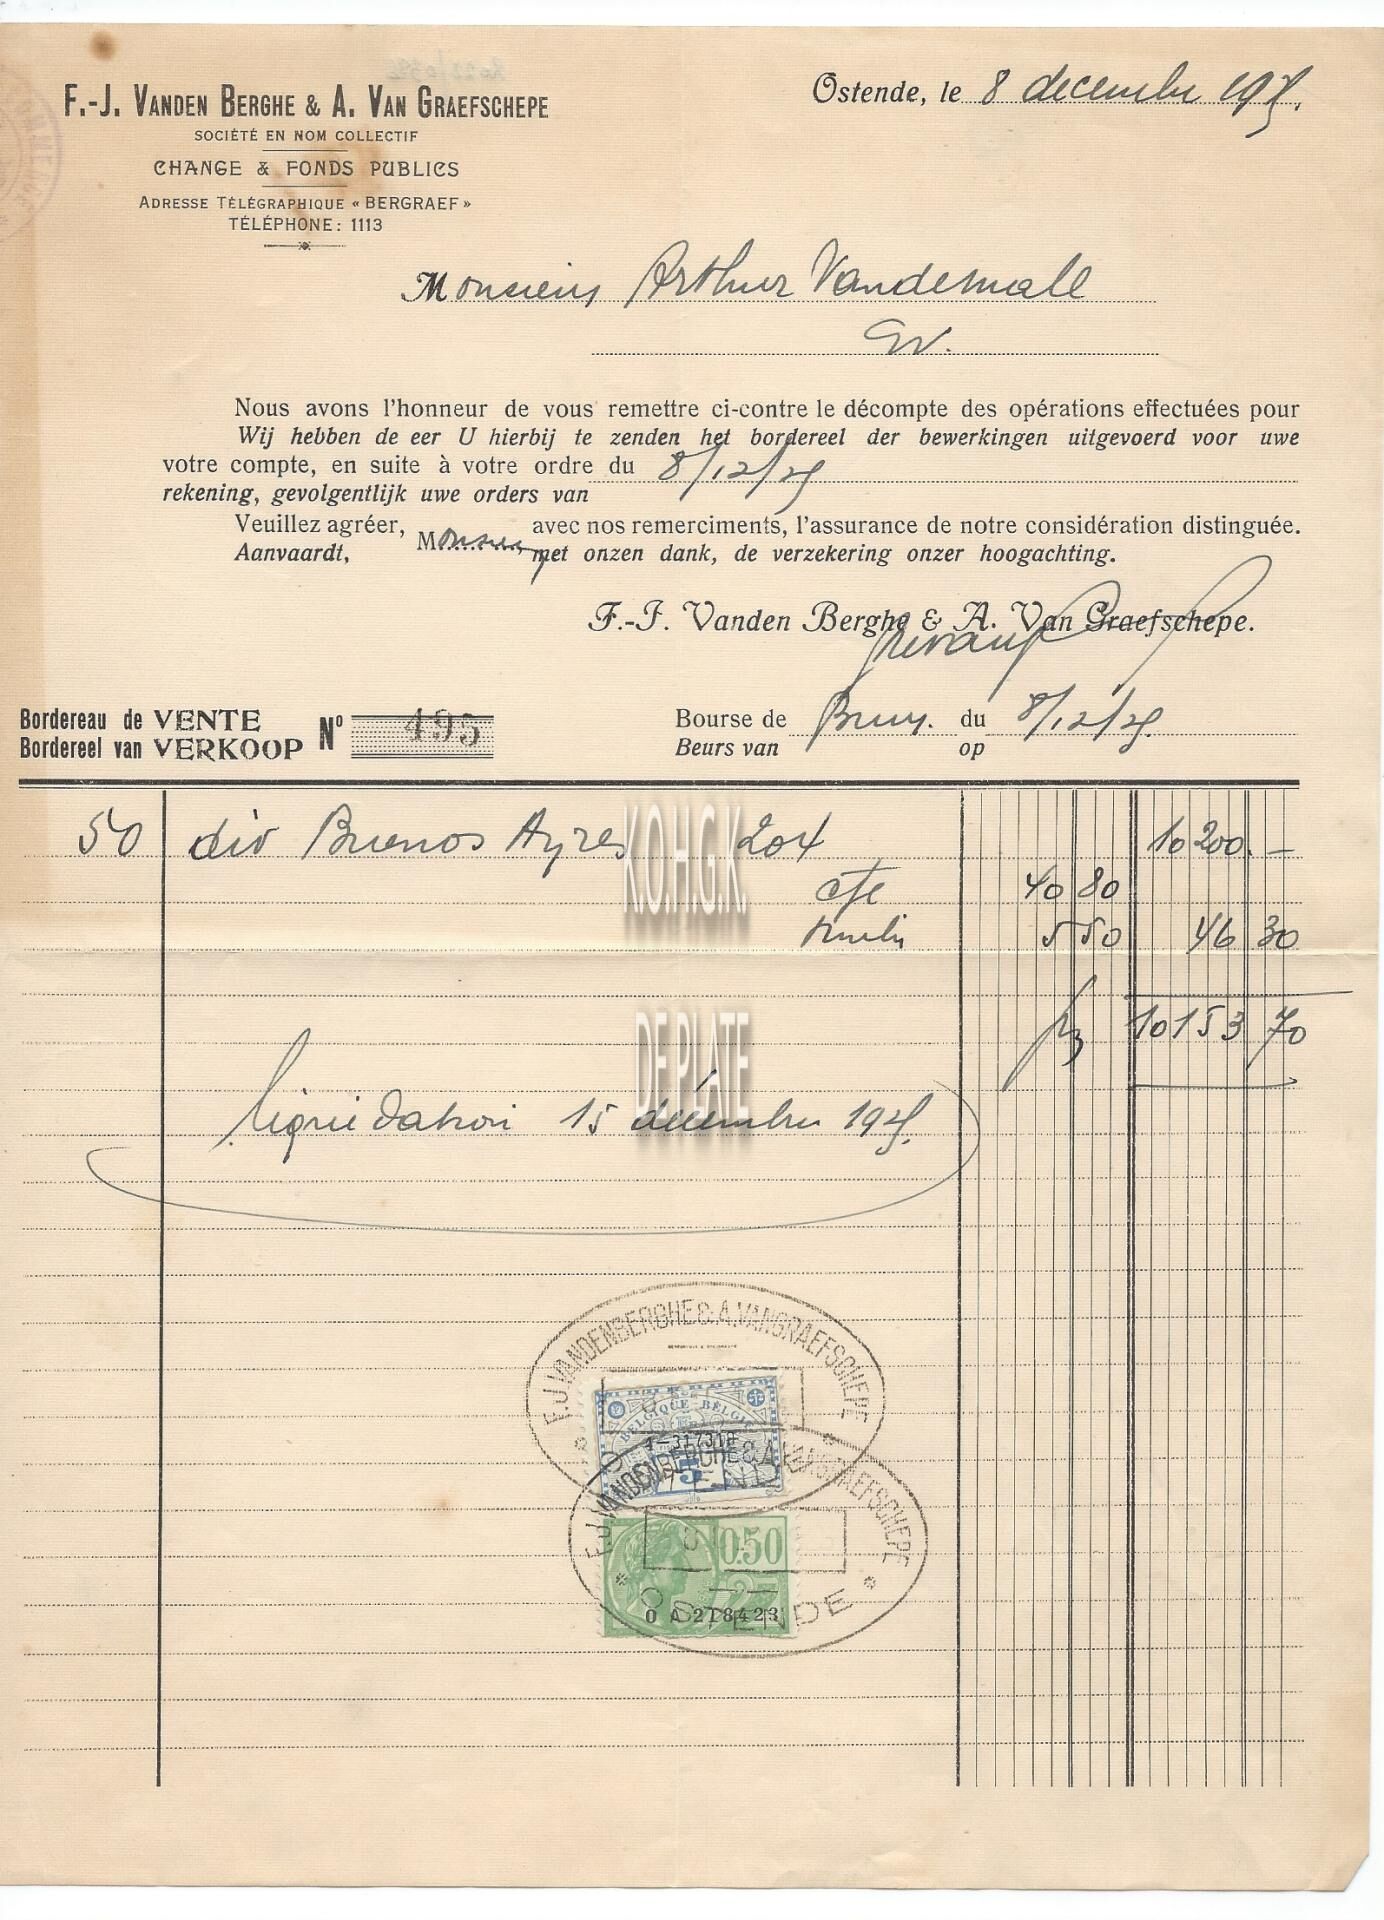 F.-J. VANDEN BERGHE & A. VAN GRAEFSCHEPE
SOCIÉTÉ EN NOM COLLECTIF
CHANGE & FONDS PUBLICS
ADRESSE TÉLÉGRAPHIQUE « BERGRAEF »
TÉLÉPHONE: 1113
Ostende, le 8 decembre
Monsieur Arthur
Nous avons l'honneur de vous remettre ci-contre le décompte des opérations effectuées pour
Wij hebben de eer U hierbij te zenden het bordereel der bewerkingen uitgevoerd voor uwe
votre compte, en suite à votre ordre du 8/12/25
rekening, gevolgentlijk uwe orders van
Veuillez agréer, Monsieur avec nos remerciments, l'assurance de notre considération distinguée.
Aanvaardt, met onzen dank, de verzekering onzer hoogachting.
F.-J. Vanden Berghe & A. Van Graefschepe.
Bordereau de VENTE
Bordereel van VERKOOP
Nº 495
Bourse de Brux. du 8/12/25
Beurs van op
50 div Buenos Ayres 204 10 200. —
cge 40 80
timbr 5 50 46 30
10 153 70
K.O.H.G.K.
DE PLATE
liquidation 15 décembre 1925.
F.J.VANDENBERGHE & A.VANGRAEFSCHEPE
BELGIQUE BELGIË
5
F.J.VANDENBERGHE & A.VANGRAEFSCHEPE
0.50
0 A 218423
OSTENDE